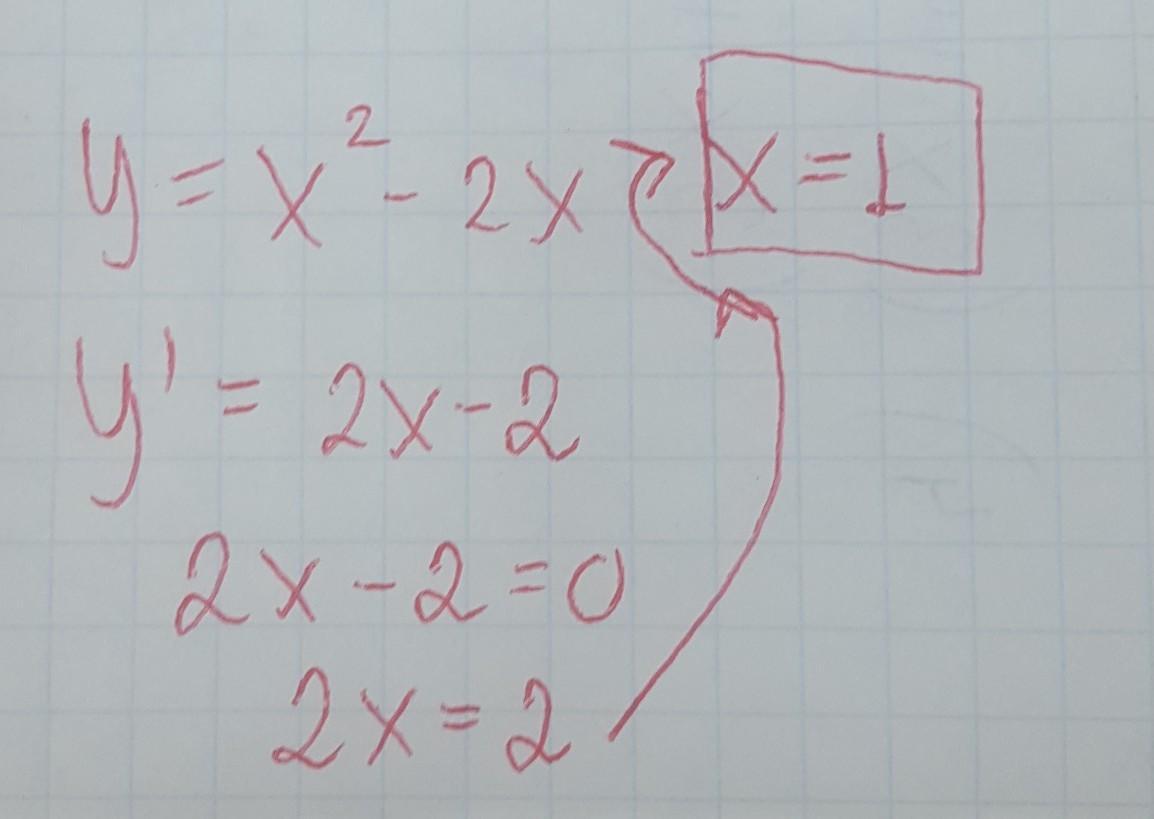 y = x² - 2x
y' = 2x - 2
2x - 2 = 0
2x = 2
x = 1